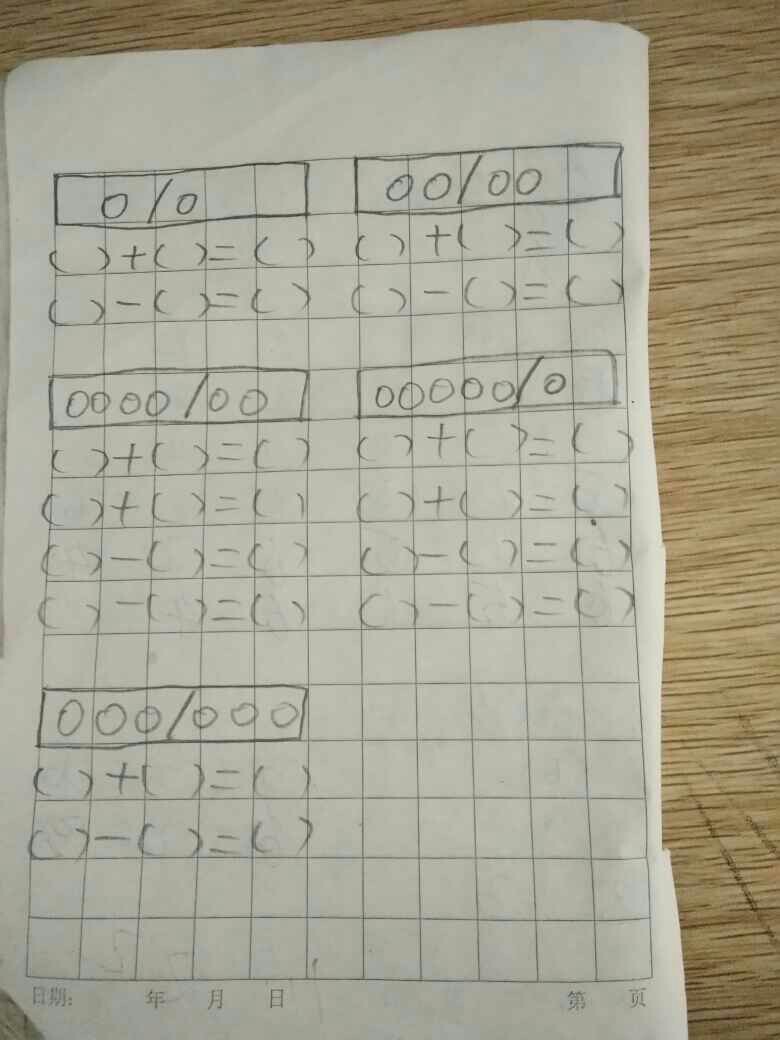 0/0
00/00
( )+( )=( )
( )+( )=( )
( )-( )=( )
( )-( )=( )
0000/00
00000/0
( )+( )=( )
( )+( )=( )
( )+( )=( )
( )+( )=( )
( )-( )=( )
( )-( )=( )
( )-( )=( )
( )-( )=( )
000/000
( )+( )=( )
( )-( )=( )
日期: 年 月 日 第 页